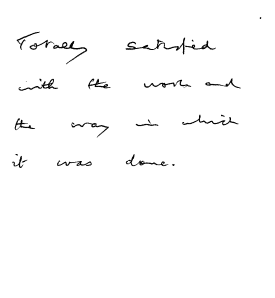 Totally satisfied
with the work and
the way in which
it was done.